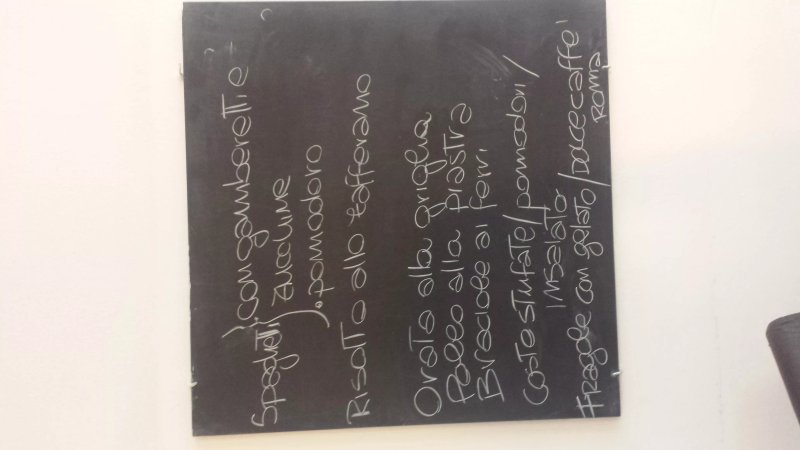 Spaghetti } con gamberetti e
zucchine
. pomodoro
Risotto allo zafferano
Orata alla griglia
Pollo alla piastra
Braciole ai ferri
Coste stufate / pomodori /
insalata
Fragole con gelato / DOLCE CAFFE'
ROMA